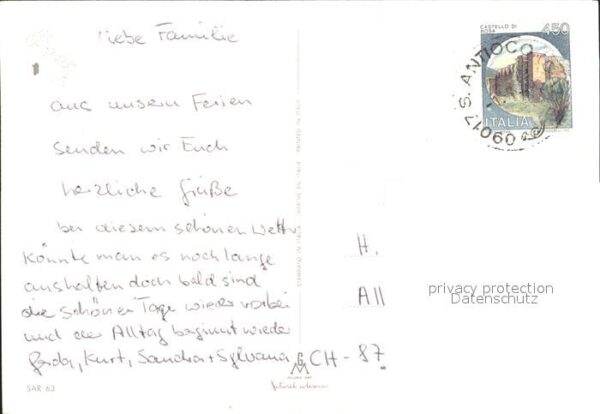 liebe Familie
aus unsern Ferien
senden wir Euch
herzliche Grüße
bei diesem schönen Wetter
könnte man es noch lange
aushalten doch bald sind
die schönen Tage wieder vorbei
und der Alltag beginnt wieder
Gerda, Kurt, Sandra + Sylvana
SAR 63
CASTELLO DI
ROSA
450
ITALIA
09017 S. ANTIOCO
H.
All
CH - 87
privacy protection
Datenschutz